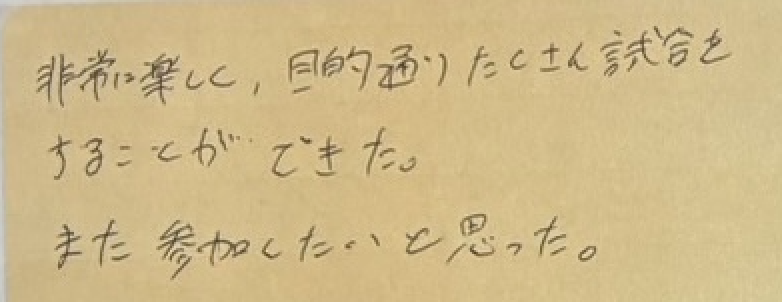 非常に楽しく,目的通りたくさん試合を
することができた。
また参加したいと思った。